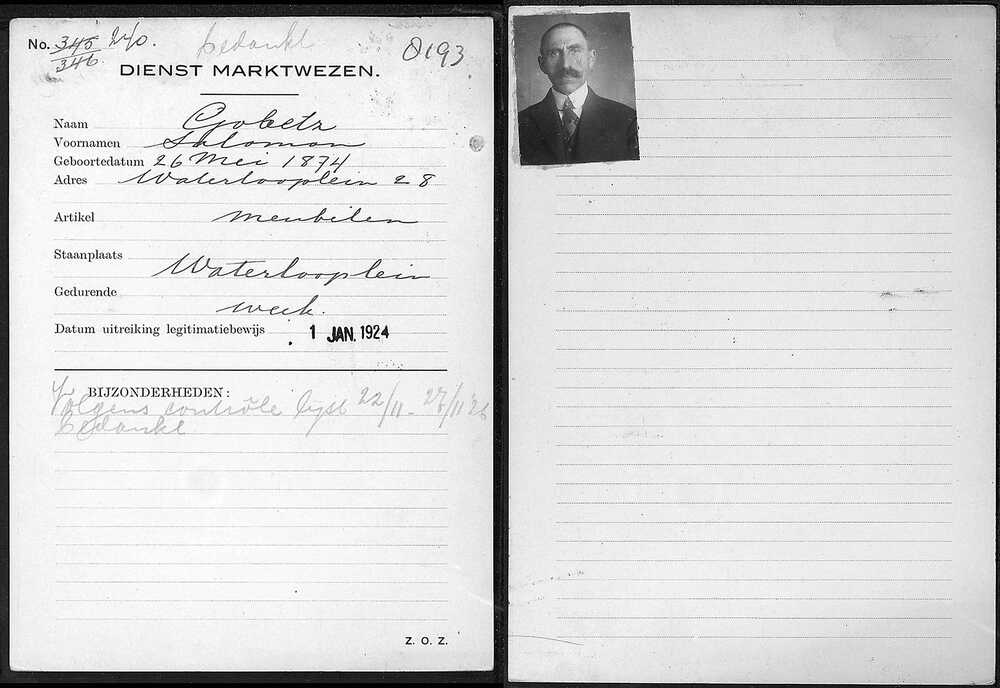 No. 345 240. bedankt 0193
346
DIENST MARKTWEZEN.
Naam Gobetz
Voornamen Salomon
Geboortedatum 26 Mei 1874
Adres Waterlooplein 28
Artikel meubelen
Staanplaats
Waterlooplein
Gedurende
week.
Datum uitreiking legitimatiebewijs 1 JAN. 1924
BIJZONDERHEDEN:
Volgens contrôle lijst 22/11 - 27/11 '26
bedankt
Z. O. Z.